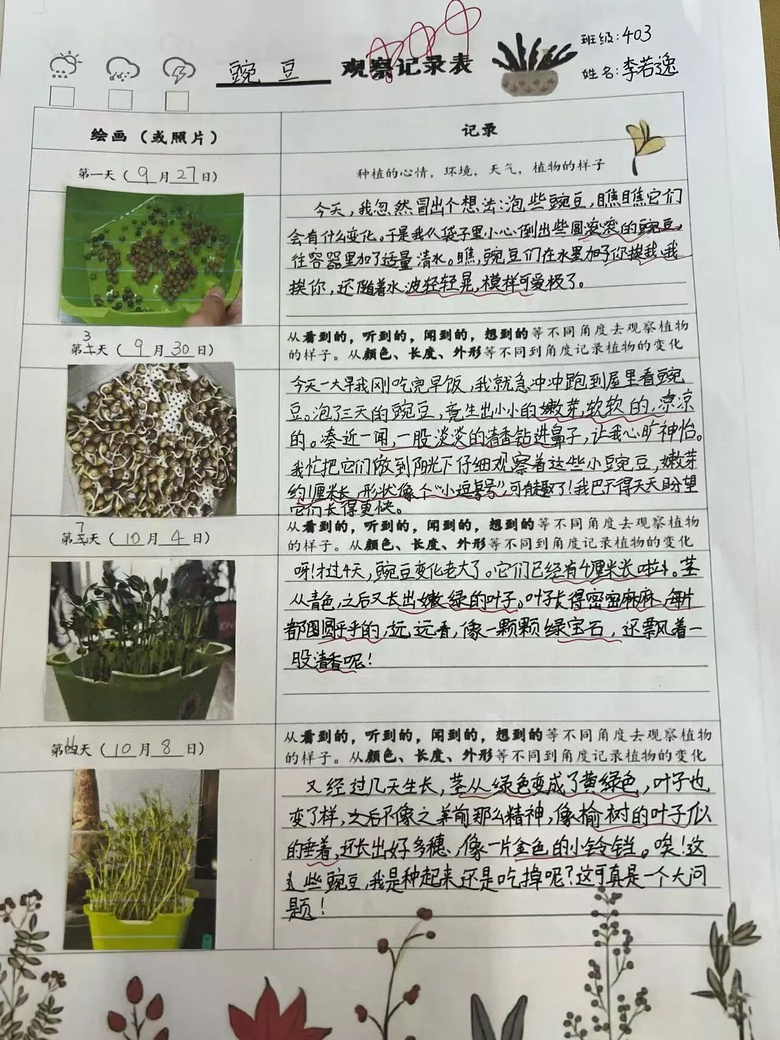 班级:403
豌豆 观察记录表
姓名:李若逸
绘画（或照片）
记录
第一天（9月27日）
种植的心情，环境，天气，植物的样子
今天，我忽然冒出个想法:泡些豌豆，瞧瞧它们
会有什么变化。于是我从袋子里小心倒出些圆滚滚的豌豆，
往容器里加了适量清水。瞧，豌豆们在水里你挨我，我
挨你，还随着水波轻轻晃，模样可爱极了。
第3天（9月30日）
从看到的，听到的，闻到的，想到的等不同角度去观察植物
的样子。从颜色、长度、外形等不同到角度记录植物的变化
今天一大早我刚吃完早饭，我就急冲冲跑到屋里看豌
豆。泡了三天的豌豆，竟生出小小的嫩芽，软软的，凉凉
的。凑近一闻，一股淡淡的清香钻进鼻子，让我心旷神怡。
我忙把它们放到阳光下仔细观察着这些小豌豆，嫩芽
约1厘米长，形状像个“小逗号”，可有趣了！我巴不得天天盼望
它们长得更快。
第7天（10月4日）
从看到的，听到的，闻到的，想到的等不同角度去观察植物
的样子。从颜色、长度、外形等不同到角度记录植物的变化
呀!才过4天，豌豆变化老大了。它们已经有4厘米长啦。茎
从青色，之后又长出嫩绿的叶子，叶子长得密密麻麻，每片
都圆圆乎乎的，远远看，像一颗颗绿宝石，还飘着一
股清香呢！
第天（10月8日）
从看到的，听到的，闻到的，想到的等不同角度去观察植物
的样子。从颜色、长度、外形等不同到角度记录植物的变化
又经过几天生长，茎从绿色变成了黄绿色，叶子也
变了样，之后不像之前那么精神，像榆树的叶子似
的垂着，还长出好多穗，像一片金色的小铃铛。唉！这
些豌豆，我是种起来还是吃掉呢？这可真是一个大问
题！